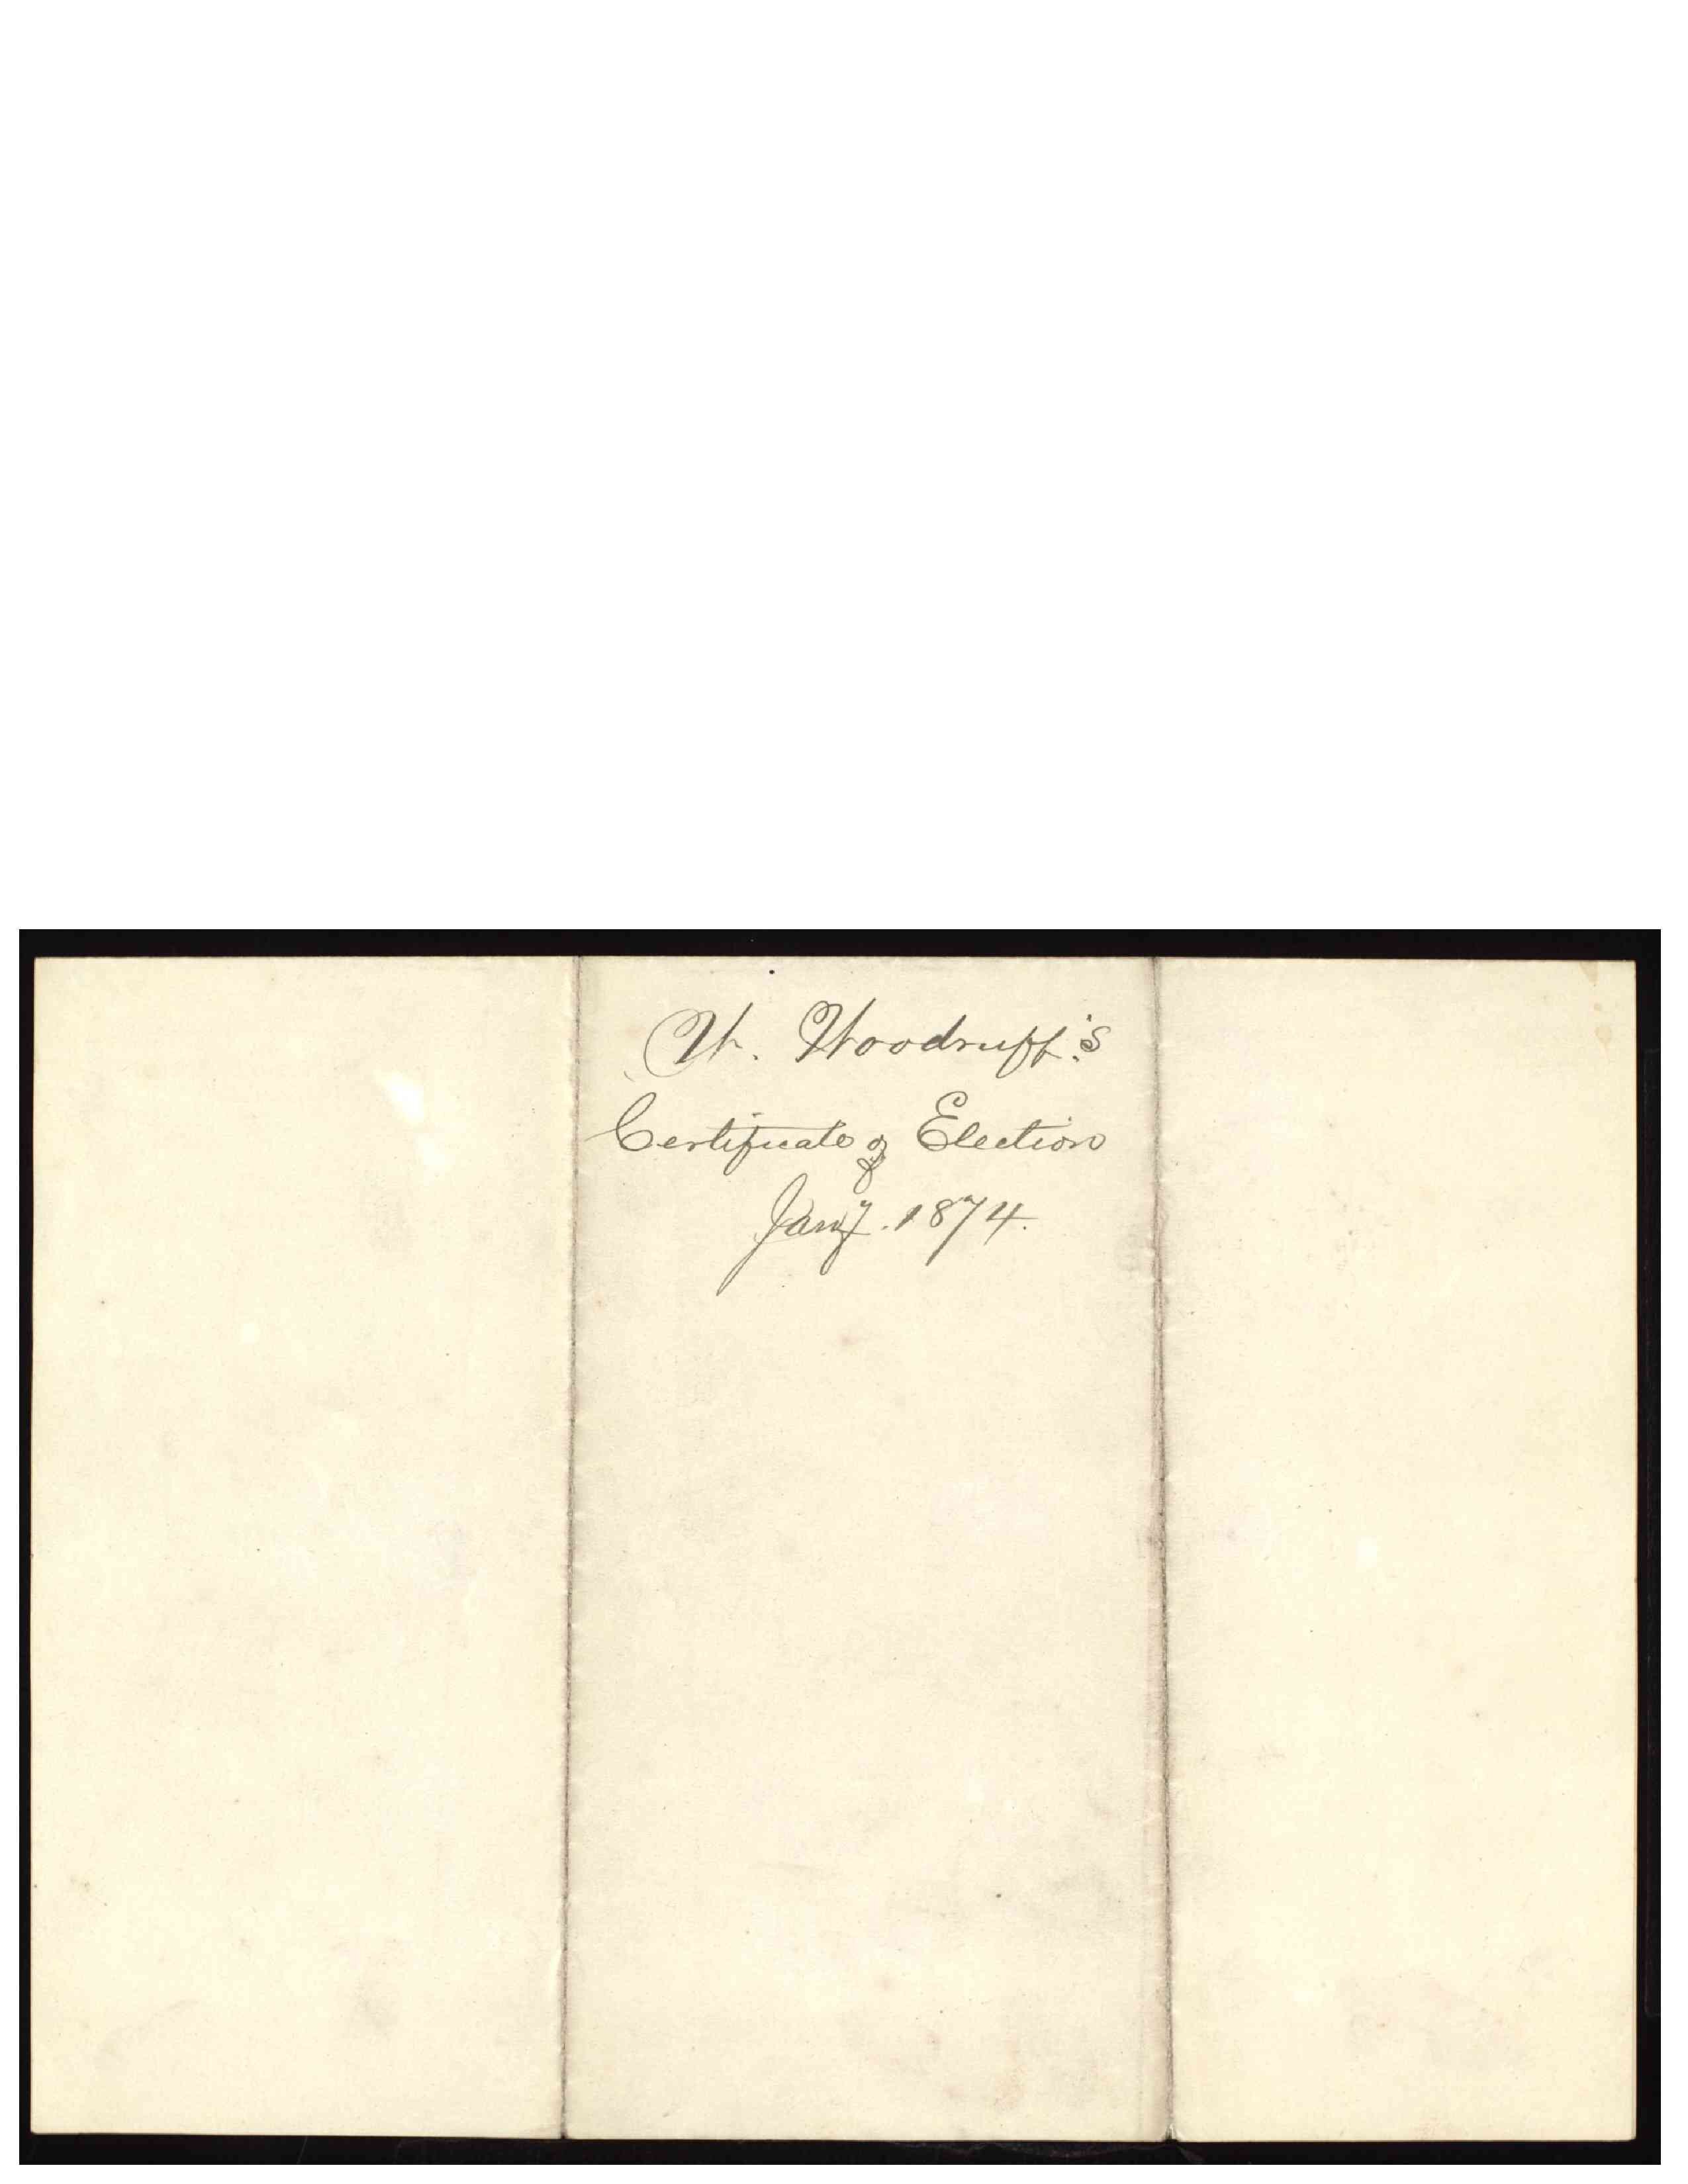 W. Woodruff's
Certificate of Election
Jany. 1874.